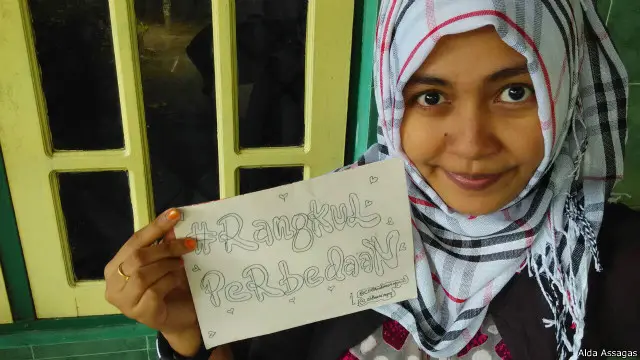 #Rangkul
PeRbedaaN
Alda Assagas